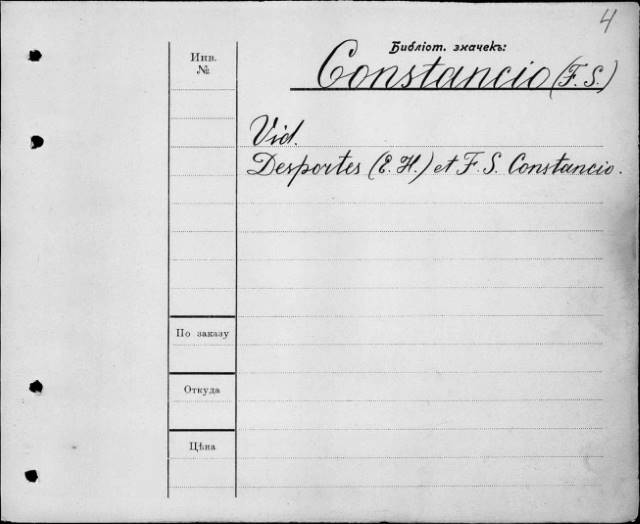 4
Библіот. значекъ:
Инв.
№
Constancio (F. S.)
Vid.
Desportes (E. H.) et F. S. Constancio.
По заказу
Откуда
Цѣна